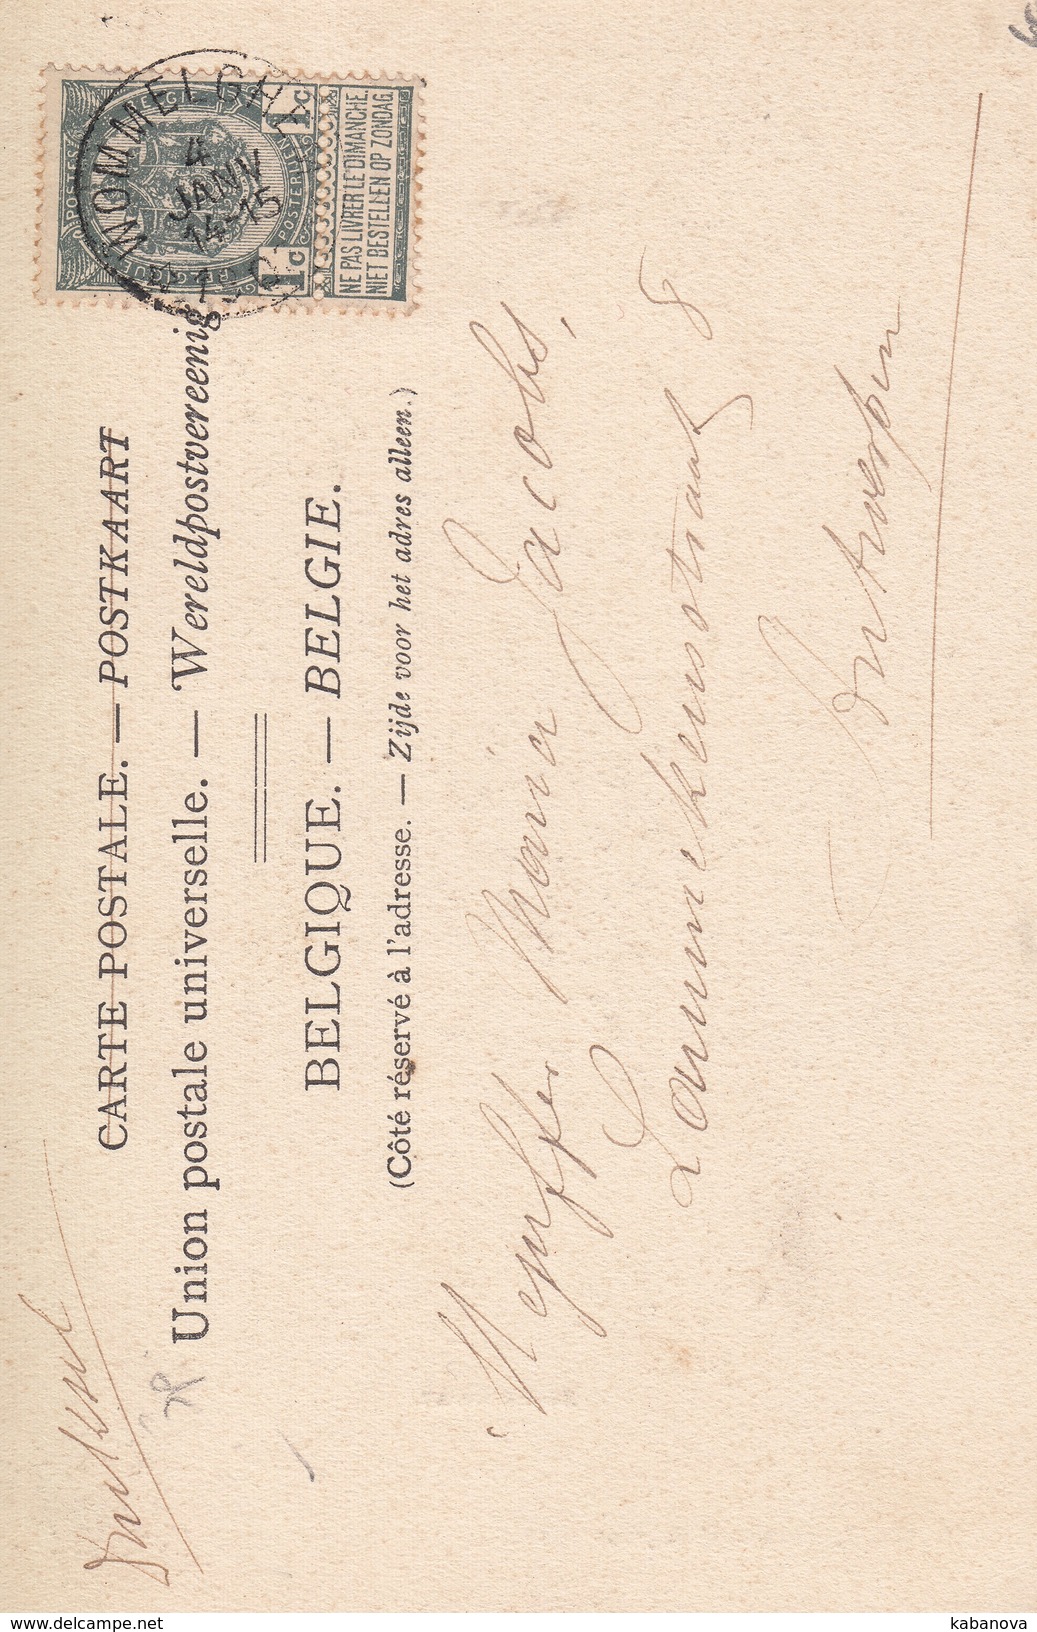 Drukwerk
CARTE POSTALE. — POSTKAART
Union postale universelle. — Wereldpostvereenig
BELGIQUE. — BELGIE.
(Côté réservé à l'adresse. — Zijde voor het adres alleen.)
POSTES BELG
POSTERIJEN
1c
1c
NE PAS LIVRER LE DIMANCHE.
NIET BESTELLEN OP ZONDAG
WOMMELGH
4
JANV
14-15
Mejuffer Maria Jacobs,
Lammekensstraat 8
Antwerpen
www.delcampe.net
kabanova